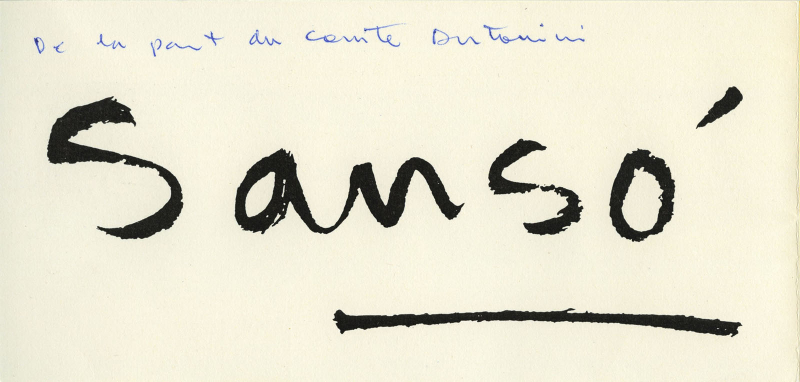 De la part du comte Antonini
Sansó